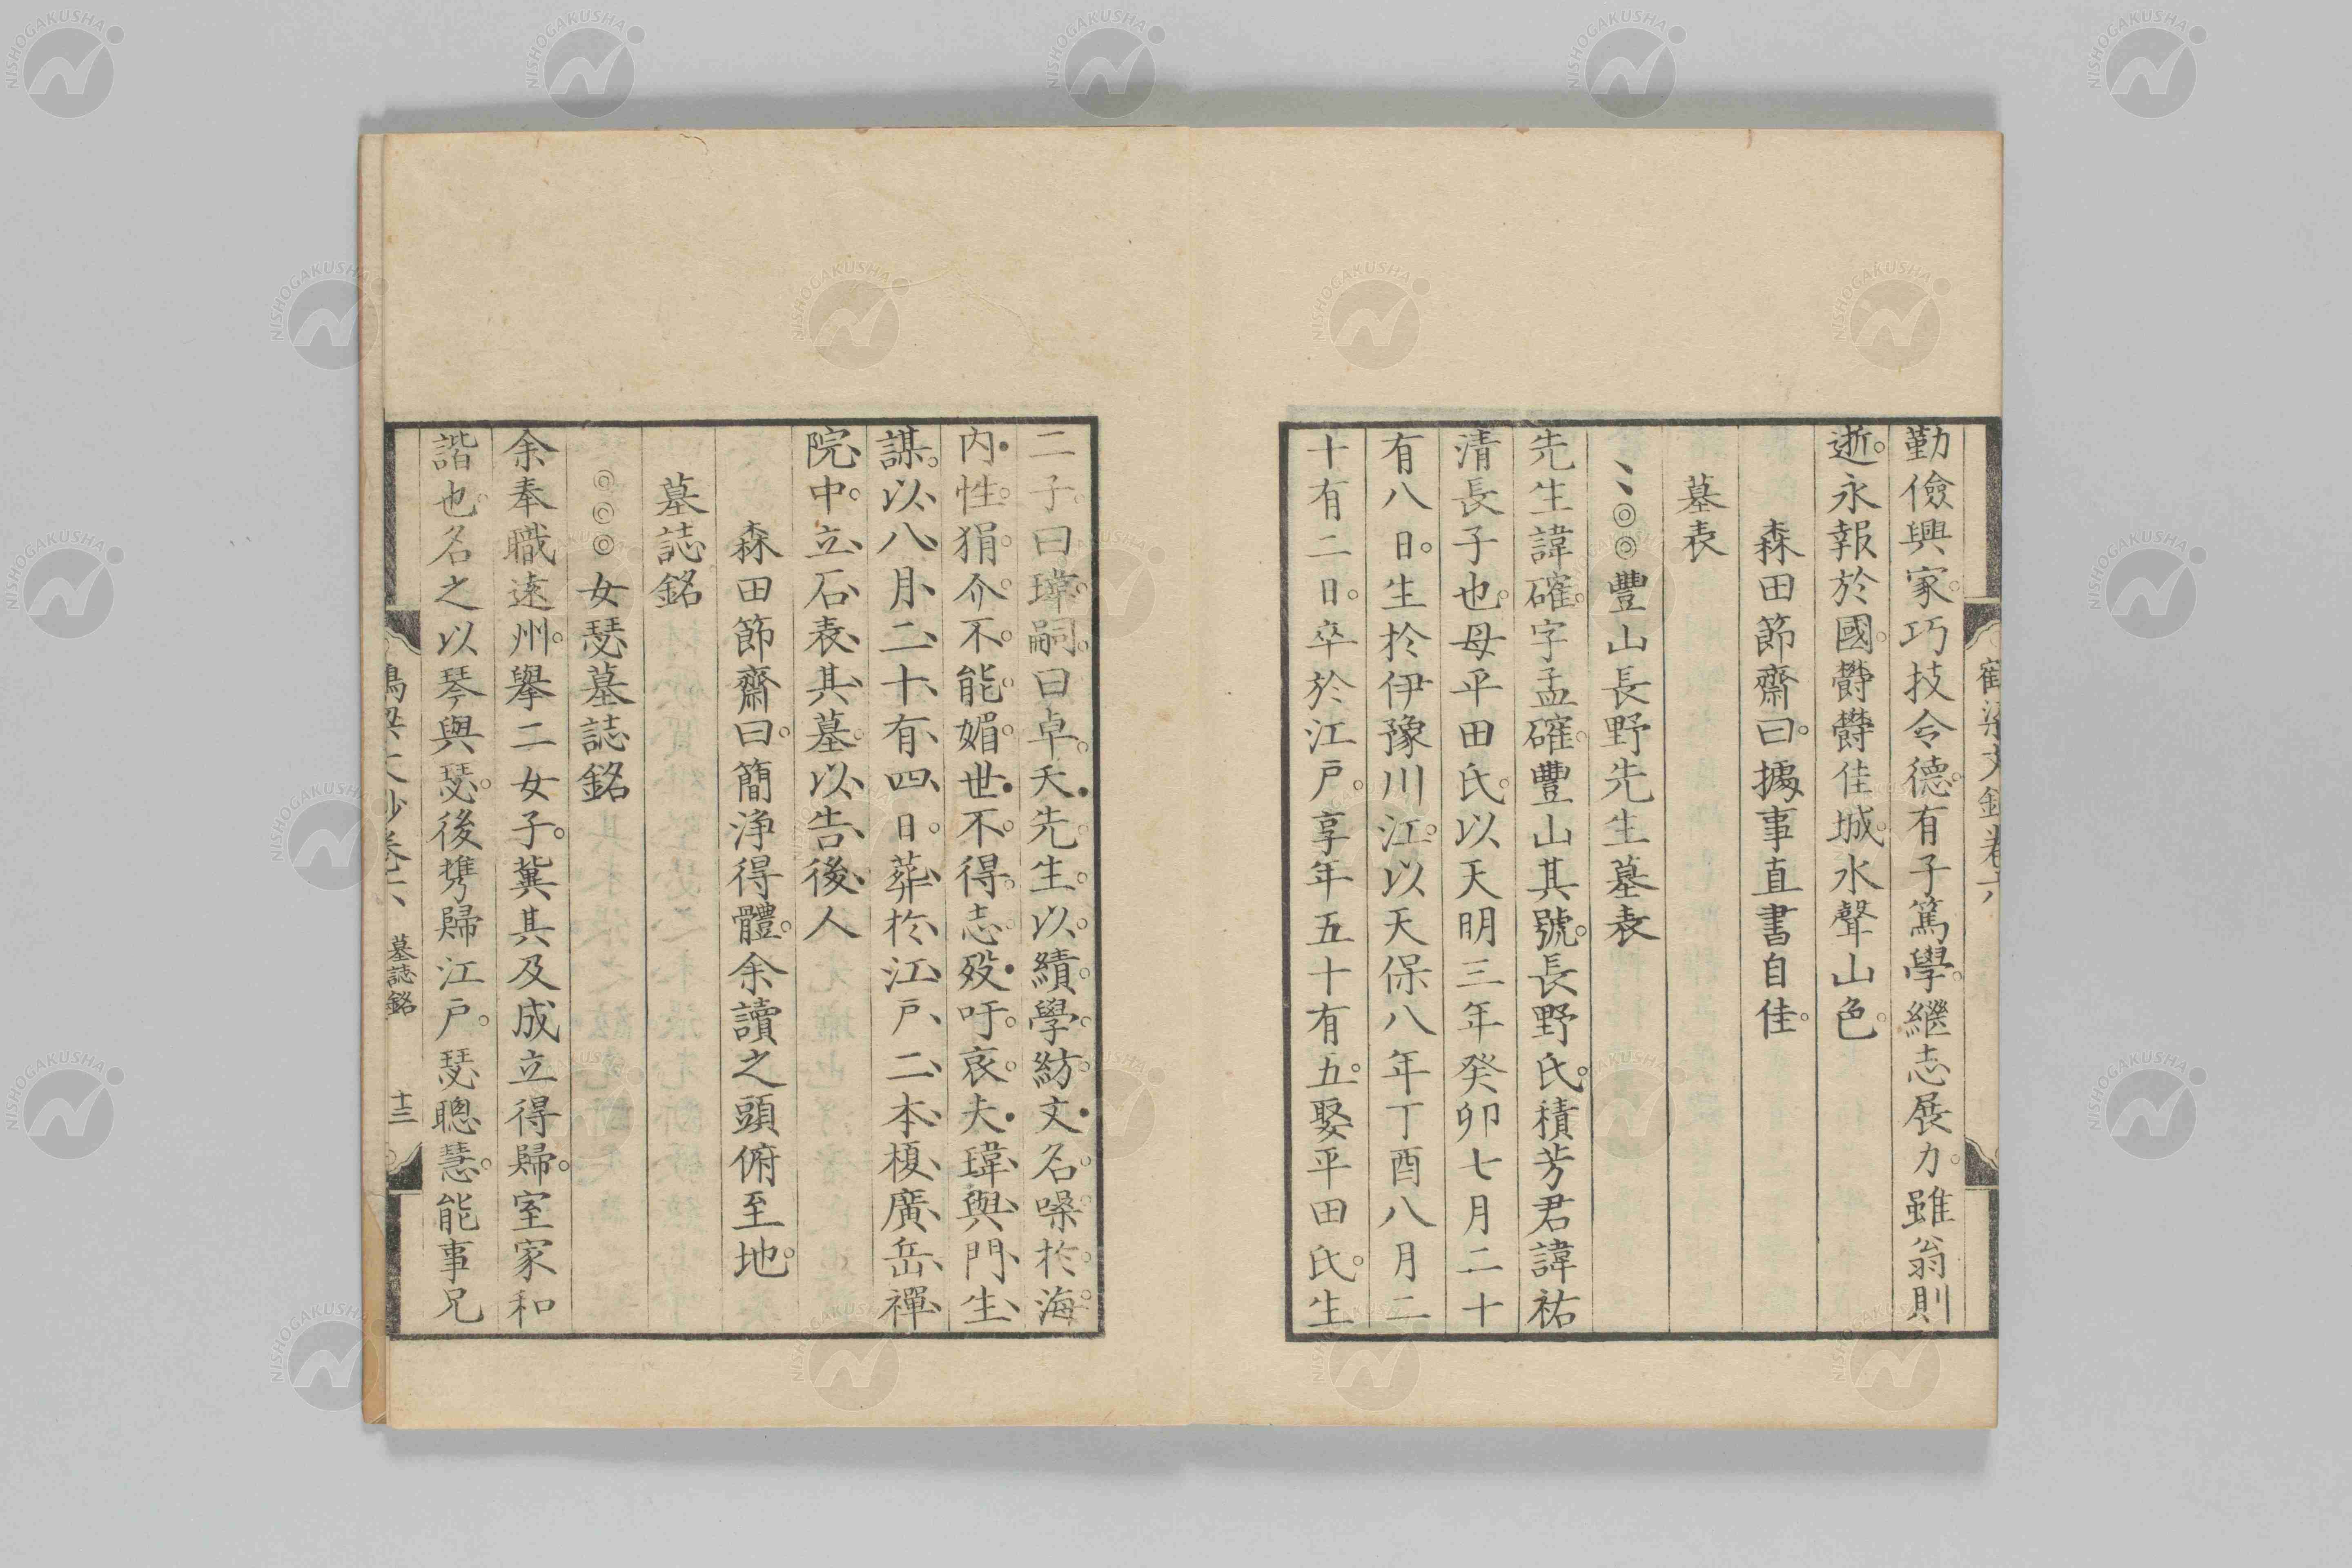 勤儉興家。巧技令德。有子篤學。繼志展力。雖翁則
逝。永報於國。欝欝佳城。水聲山色。
森田節齋曰。據事直書自佳。
墓表
豐山長野先生墓表
先生諱確。字孟確。豐山其號。長野氏。積芳君諱祐
清長子也。母平田氏。以天明三年癸卯七月二十
有八日。生於伊豫川江。以天保八年丁酉八月二
十有二日。卒於江戸。享年五十有五。娶平田氏。生
二子。曰瑋。嗣。曰卓。夭。先生以績學紡文。名嗓於海
内。性狷介。不能媚世。不得志歿。吁。哀夫。瑋與門生
謀。以八月二十有四日。葬於江戸二本榎廣岳禪
院中。立石表其墓。以告後人
森田節齋曰。簡淨得體。余讀之頭俯至地。
墓誌銘
◎◎◎女瑟墓誌銘
余奉職遠州。擧二女子。冀其及成立得歸。室家和
諧也。名之以琴與瑟。後携歸江戸。瑟聰慧。能事兄
鶴梁文鈔卷六
墓誌銘
十三
NISHOGAKUSHA